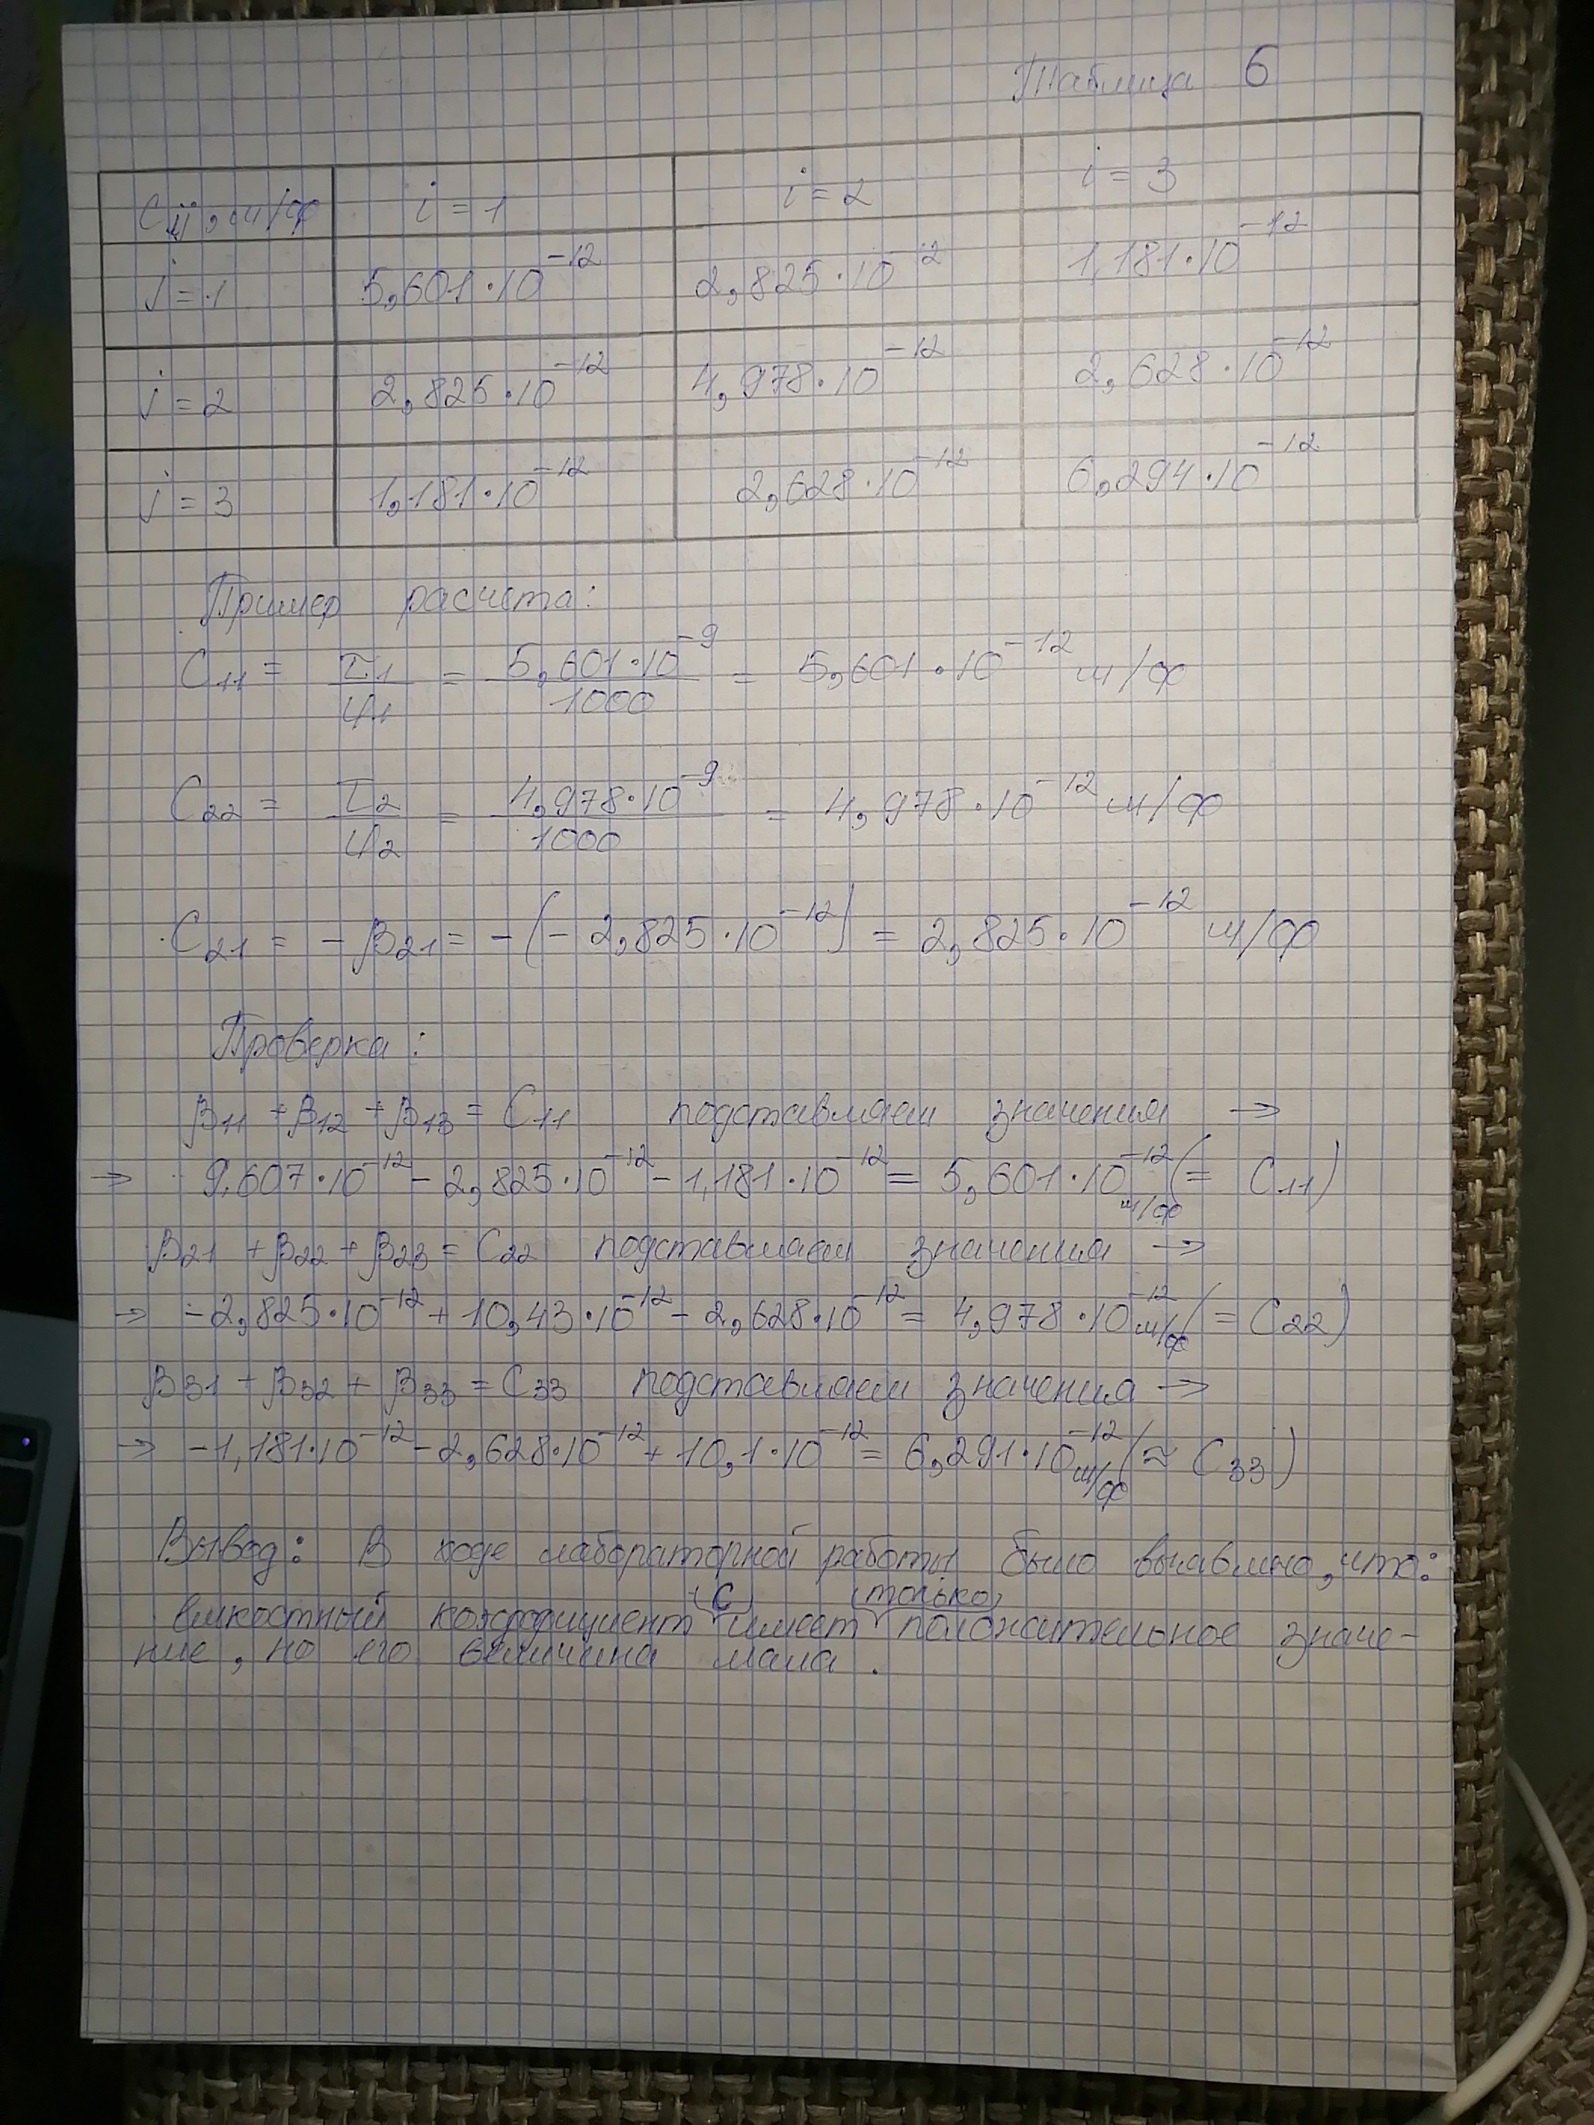 Таблица 6
Cij, м/ф i = 1 i = 2 i = 3
j = 1 5,601·10⁻¹² 2,825·10⁻¹² 1,181·10⁻¹²
j = 2 2,825·10⁻¹² 4,978·10⁻¹² 2,628·10⁻¹²
j = 3 1,181·10⁻¹² 2,628·10⁻¹² 6,294·10⁻¹²
Пример расчёта:
C₁₁ = τ₁/φ₁ = 5,601·10⁻⁹/1000 = 5,601·10⁻¹² м/ф
C₂₂ = τ₂/φ₂ = 4,978·10⁻⁹/1000 = 4,978·10⁻¹² м/ф
C₂₁ = -β₂₁ = -(-2,825·10⁻¹²) = 2,825·10⁻¹² м/ф
Проверка:
β₁₁ + β₁₂ + β₁₃ = C₁₁ подставляем значения →
→ 9,607·10⁻¹² - 2,825·10⁻¹² - 1,181·10⁻¹² = 5,601·10⁻¹² м/ф (= C₁₁)
β₂₁ + β₂₂ + β₂₃ = C₂₂ подставляем значения →
→ -2,825·10⁻¹² + 10,43·10⁻¹² - 2,628·10⁻¹² = 4,978·10⁻¹² м/ф (= C₂₂)
β₃₁ + β₃₂ + β₃₃ = C₃₃ подставляем значения →
→ -1,181·10⁻¹² - 2,628·10⁻¹² + 10,1·10⁻¹² = 6,291·10⁻¹² м/ф (≈ C₃₃)
Вывод: В ходе лабораторной работы было выявлено, что:
ёмкостный коэффициент (C) имеет (только) положительное значе-
ние, но его величина мала.